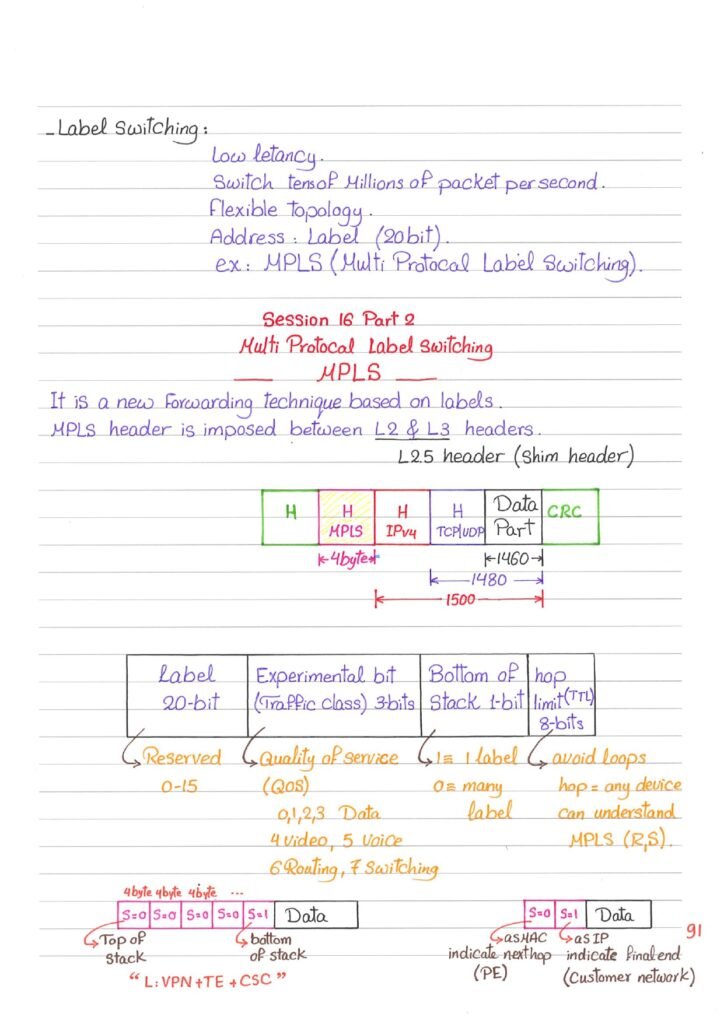 - Label Switching:
Low letancy.
Switch tens of Millions of packet per second.
Flexible topology.
Address: Label (20bit).
ex: MPLS (Multi Protocal Label Switching).
Session 16 Part 2
Multi Protocal Label Switching
MPLS
It is a new Forwarding technique based on labels.
MPLS header is imposed between L2 & L3 headers.
L2.5 header (Shim header)
H H MPLS H IPv4 H TCP/UDP Data Part CRC
4byte 1460
1480
1500
Label Experimental bit Bottom of hop
20-bit (Traffic class) 3-bits Stack 1-bit limit (TTL)
8-bits
Reserved Quality of service 1≡ 1 label avoid loops
0-15 (QOS) 0≡ many hop = any device
0,1,2,3 Data label can understand
4 Video, 5 Voice MPLS (R,S).
6 Routing, 7 Switching
4byte 4byte 4byte ...
S=0 S=0 S=0 S=0 S=1 Data S=0 S=1 Data
Top of stack bottom of stack as MAC indicate next hop (PE) as IP indicate final end (Customer network)
"L: VPN + TE + CSC"
91